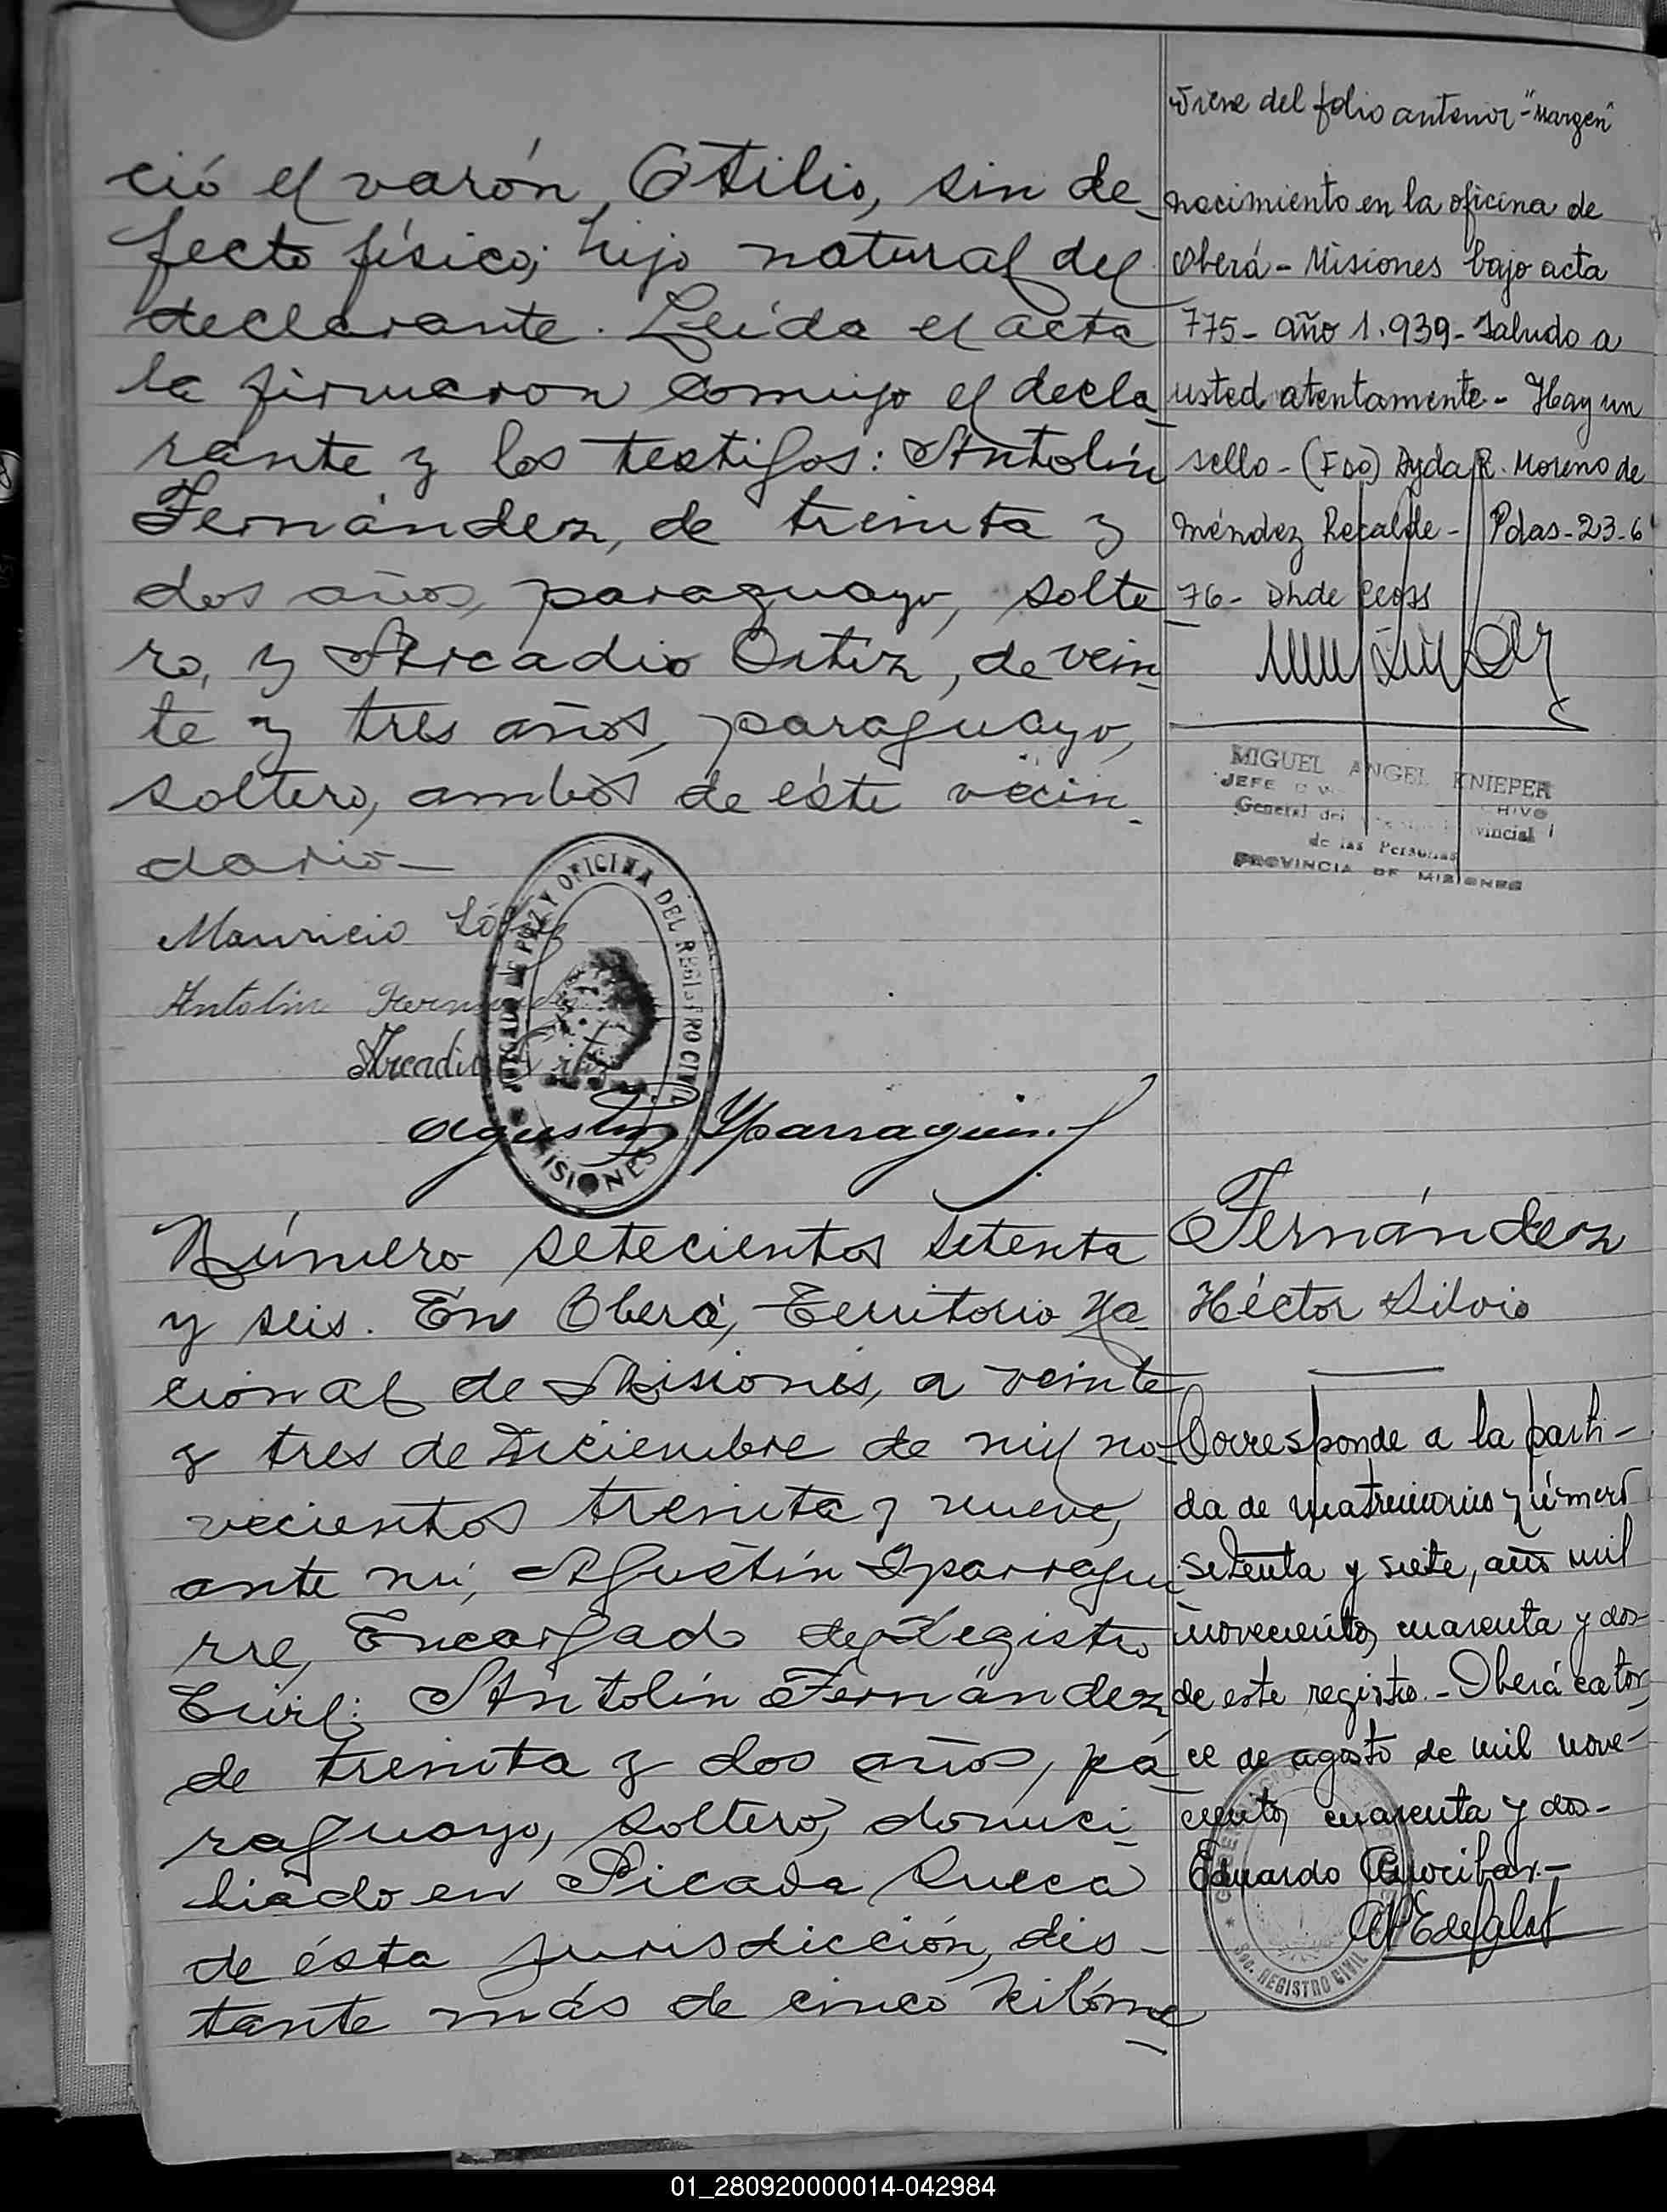 ció el varón, Otilio, sin de-
fecto físico; hijo natural del
declarante. Leída el acta
la firmaron conmigo el decla-
rante y los testigos: Antolín
Fernández, de treinta y
dos años, paraguayo, solte-
ro, y Arcadio Ortiz, de vein-
te y tres años, paraguayo,
soltero, ambos de éste vecin-
dario-
Mauricio López
Antolin Fernandez
Arcadio Ortiz
Agustin Yparraguirre
JUZGADO DE PAZ Y OFICINA DEL REGISTRO CIVIL
MISIONES
Número setecientos setenta
y seis. En Oberá, Territorio Na-
cional de Misiones, a veinte
y tres de Diciembre de mil no-
vecientos treinta y nueve,
ante mí, Agustín Yparragui-
rre, Encargado del Registro
Civil: Antolín Fernández,
de treinta y dos años, pa-
raguayo, soltero, domici-
liado en Picada Sueca
de ésta jurisdicción, dis-
tante más de cinco kilóme-
Viene del folio anterior - "Margen"
nacimiento en la oficina de
Oberá - Misiones bajo acta
775- año 1.939- Saludo a
usted atentamente - Hay un
sello - (Fdo) Ayda R. Moreno de
Méndez Recalde - Pdas-23-6
76-
MIGUEL ANGEL KNIEPER
JEFE
General del Provincial
de las Personas
PROVINCIA DE MISIONES
Fernández
Héctor Silvio
Corresponde a la parti-
da de matrimonio número
setenta y siete, año mil
novecientos cuarenta y dos-
de este registro.- Oberá cator-
ce de agosto de mil nove-
cientos cuarenta y dos-
Eduardo
SEC. REGISTRO CIVIL
01_280920000014-042984